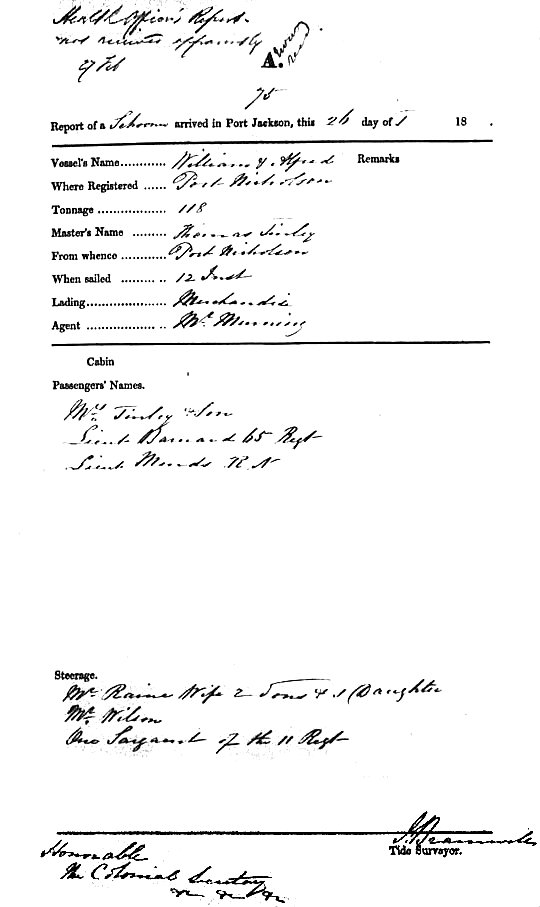 Health Officer's Report
not received apparently
27 Feb
A.
75
Report of a Schooner arrived in Port Jackson, this 26 day of 18 .
Vessel's Name............ William & Alfred Remarks
Where Registered ...... Port Nicholson
Tonnage .................. 118
Master's Name ......... Thomas Tinley
From whence ............ Port Nicholson
When sailed ............ 12 Inst
Lading...................... Merchandise
Agent ...................... Mr.
Cabin
Passengers' Names.
Mrs. Tinley & Son
Lieut Barnard 65 Regt
Lieut R N
Steerage.
Mr. Raine Wife 2 Sons & 1 Daughter
Mr. Wilson
One Sargeant of the 11 Regt
Tide Surveyor.
Honorable
The Colonial Secretary
&c &c &c